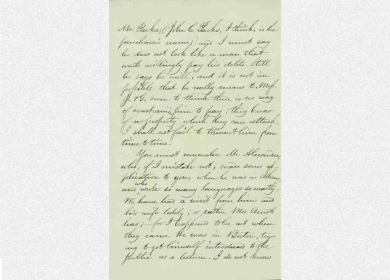 Mr. Parks, (John C. Parks, I think, is the
gentleman's name;) and I must say
he does not look like a man that
would willingly pay his debts. Still
he says he will, and it is not im-
possible that he really means to. Mess.
J. & G. seem to think there is no way
of constraining him to pay; they know
of no property which they can attach.
I shall not fail to torment him from
time to time.
You must remember Mr. Alexander,
who, if I mistake not, made some ap-
plication to you, when he was in
and who wrote so many languages so neatly.
We have had a visit from him and
his wife lately; or rather Mrs.
has; — for I happened to be out when
they came. He was in Boston, try-
ing to get himself introduced to the
public as a lecturer. I do not know